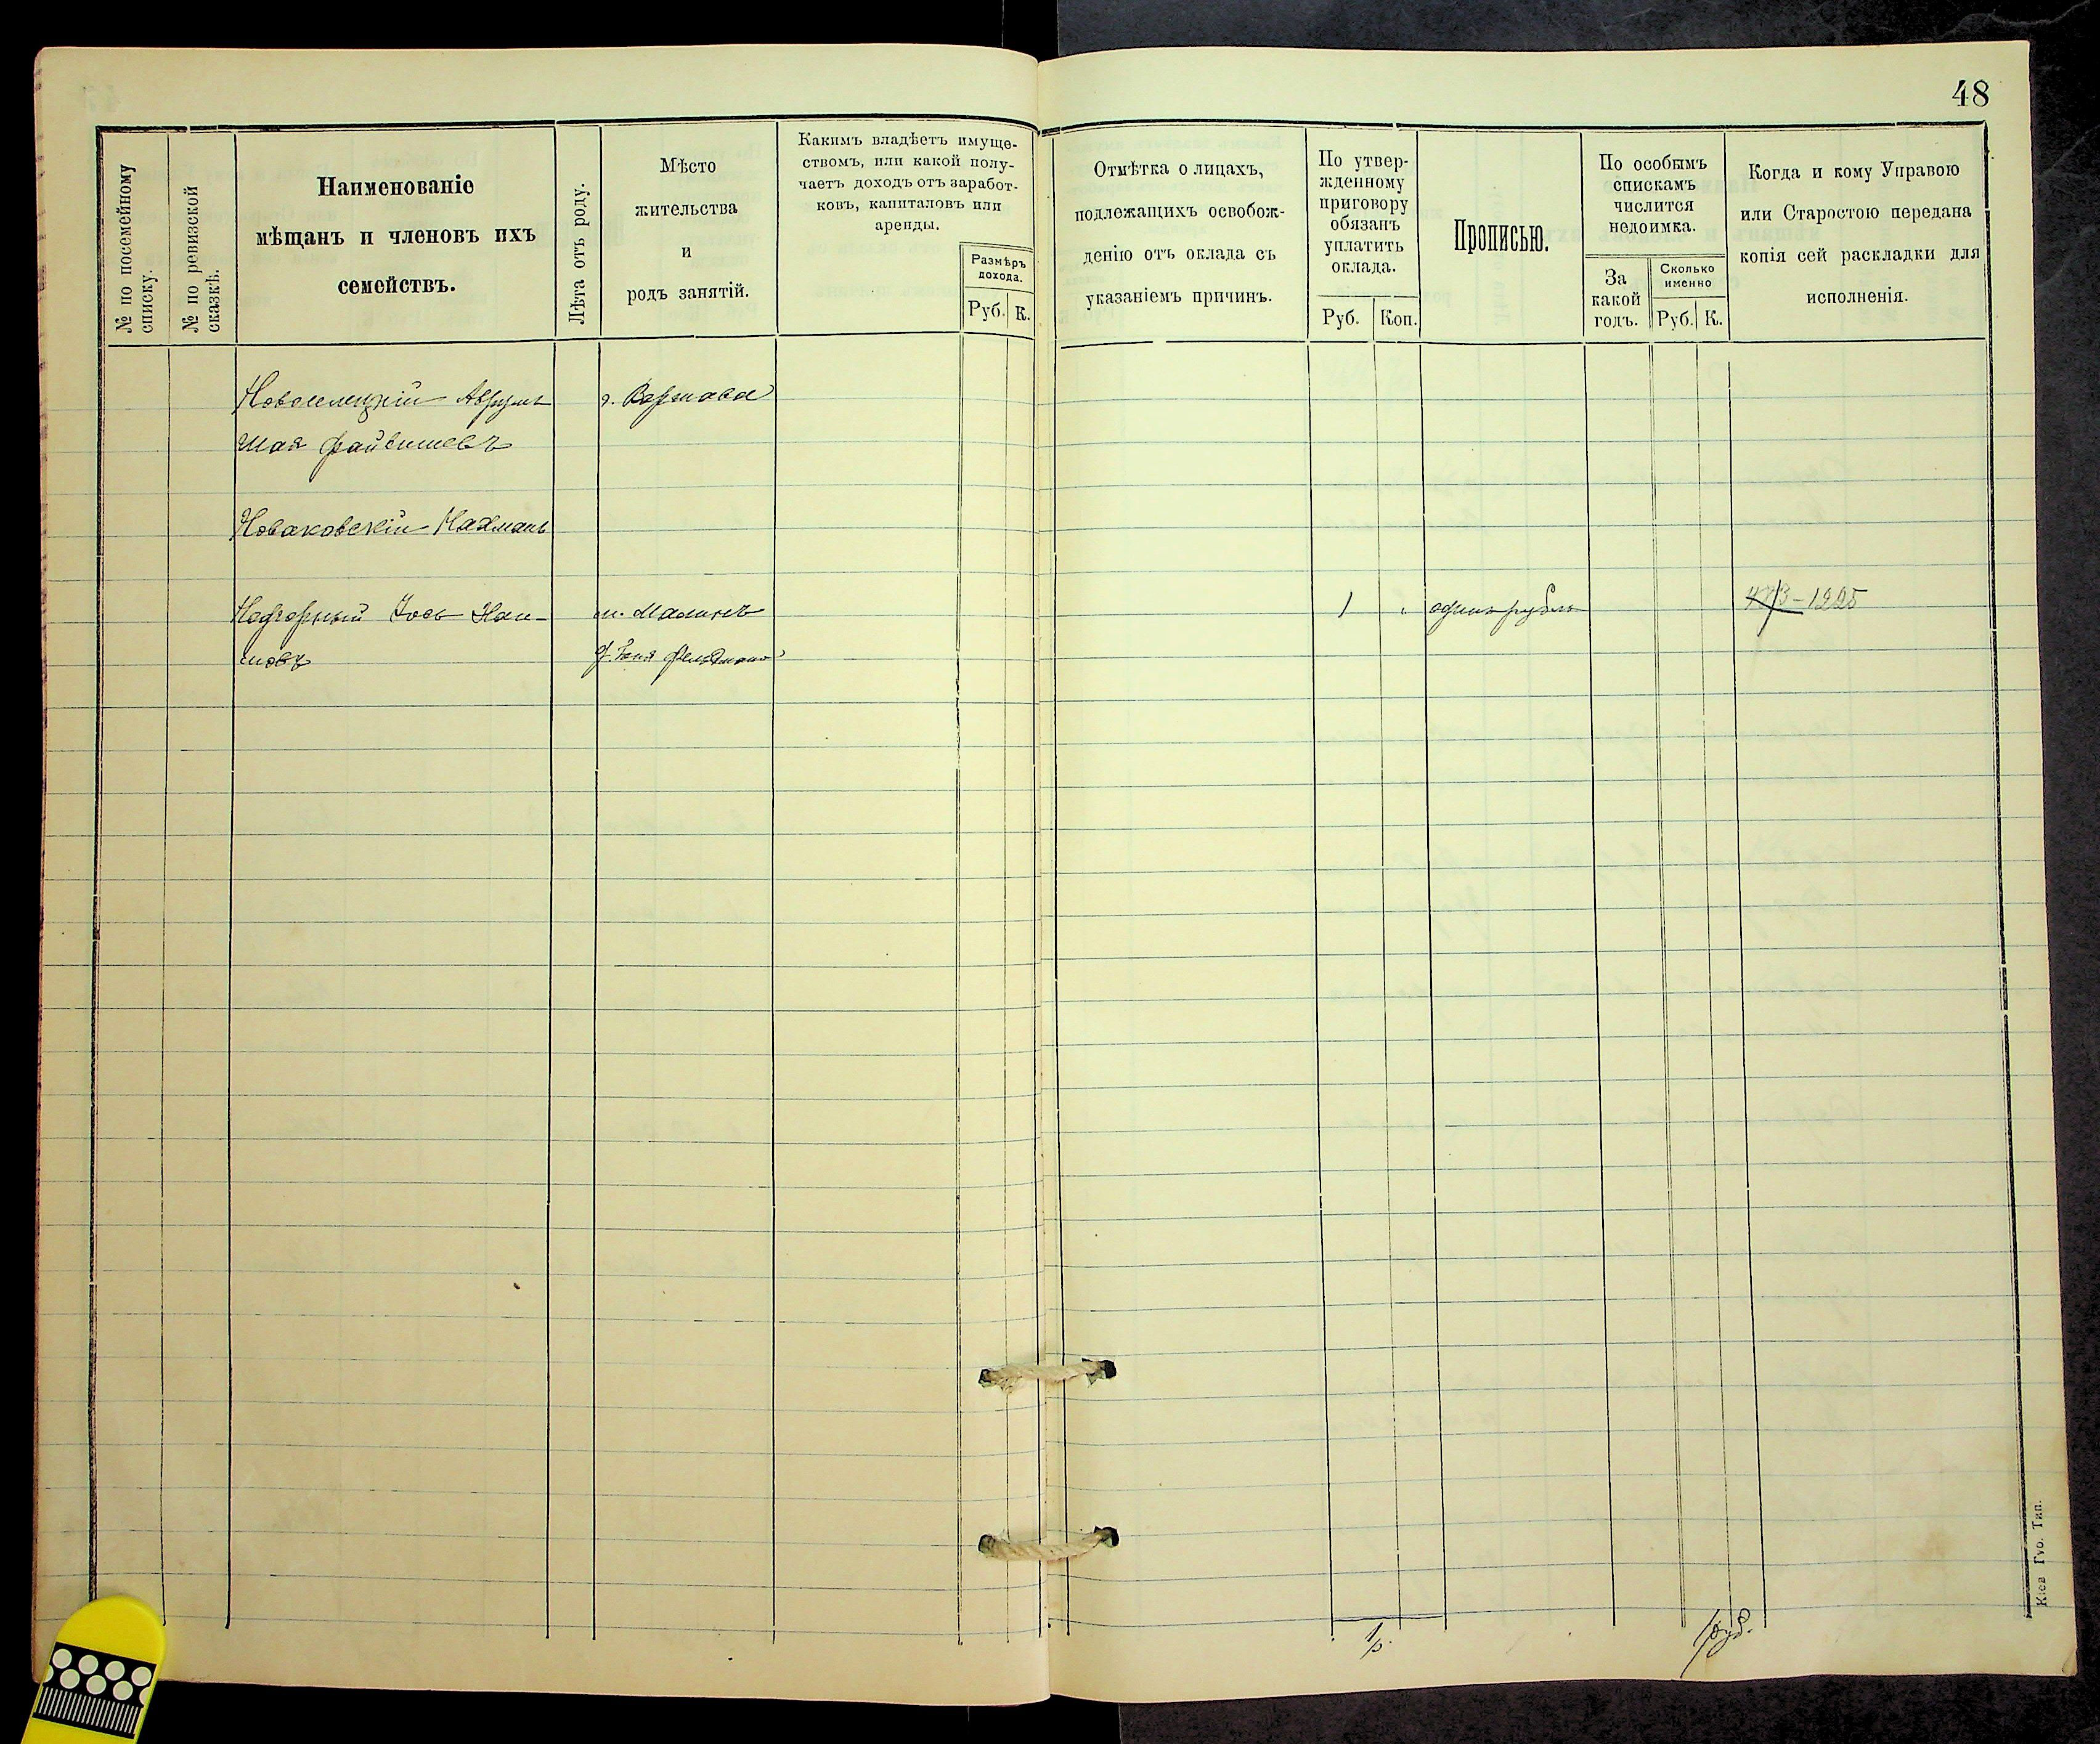 48
№ по посемейному
списку.
№ по ревизской
сказкѣ.
Наименованіе
мѣщанъ и членовъ ихъ
семействъ.
Лѣта отъ роду.
Мѣсто
жительства
и
родъ занятій.
Какимъ владѣетъ имуще-
ствомъ, или какой полу-
чаетъ доходъ отъ заработ-
ковъ, капиталовъ или
аренды.
Размѣръ
дохода.
Руб. К.
Отмѣтка о лицахъ,
подлежащихъ освобож-
денію отъ оклада съ
указаніемъ причинъ.
По утвер-
жденному
приговору
обязанъ
уплатить
оклада.
Руб. Коп.
Прописью.
По особымъ
спискамъ
числится
недоимка.
За
какой
годъ.
Сколько
именно
Руб. К.
Когда и кому Управою
или Старостою передана
копія сей раскладки для
исполненія.
Новоселецкій Аврумъ г. Варшава
Шая Файвишевъ
Новаковскій Нахманъ
Нагорный Іось Хаи- м. Малинъ 1 " одинъ рубль 473-1225
мовъ Фельдманъ
1 р. 1 руб.
Кіев Губ. Тип.